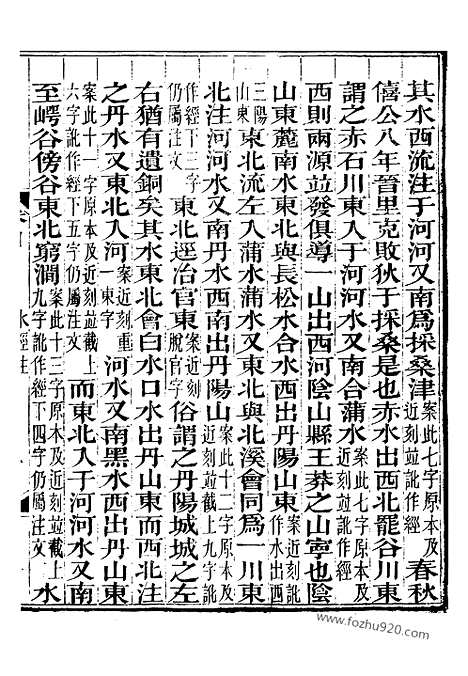 其水西流注于河河又南爲採桑津案此七字原本及近刻竝訛作經春秋
僖公八年晉里克敗狄于採桑是也赤水出西北罷谷川東
謂之赤石川東入于河河水又南合蒲水案此七字原本及近刻竝訛作經
西則兩源竝發俱導一山出西河陰山縣王莽之山寧也陰
山東麓南水東北與長松水合水西出丹陽山東案近刻訛作水出西
三陽山東東北流左入蒲水蒲水又東北與北溪會同爲一川東
北注河河水又南丹水西南出丹陽山案此十二字原本及近刻竝截上九字訛
作經下三字仍屬注文東北逕冶官東案近刻脫官字俗謂之丹陽城城之左
右猶有遺銅矣其水東北會白水口水出丹山東而西北注
之丹水又東北入河案近刻重一東字河水又南黑水西出丹山東
案此十一字原本及近刻竝截上六字訛作經下五字仍屬注文而東北入于河河水又南
至崿谷傍谷東北窮澗案此十三字原本及近刻竝截上九字訛作經下四字仍屬注文水
水經注
www.fozhu920.com